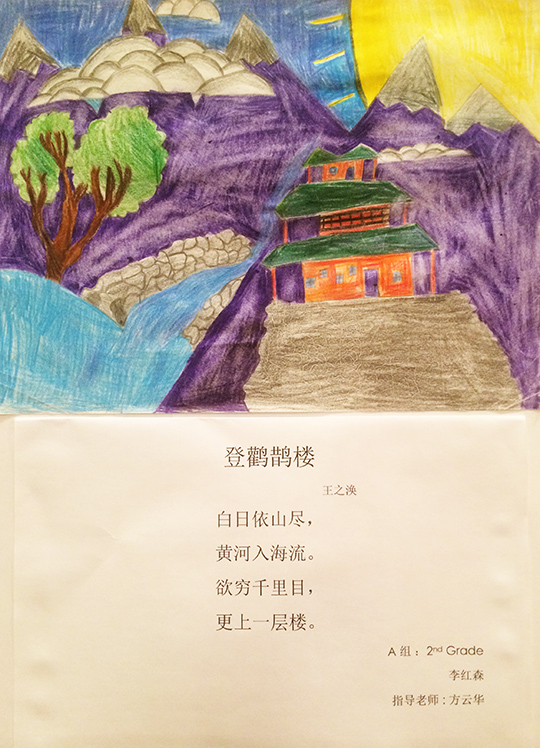 登鹳鹊楼
王之涣
白日依山尽，
黄河入海流。
欲穷千里目，
更上一层楼。
A 组：2nd Grade
李红森
指导老师：方云华